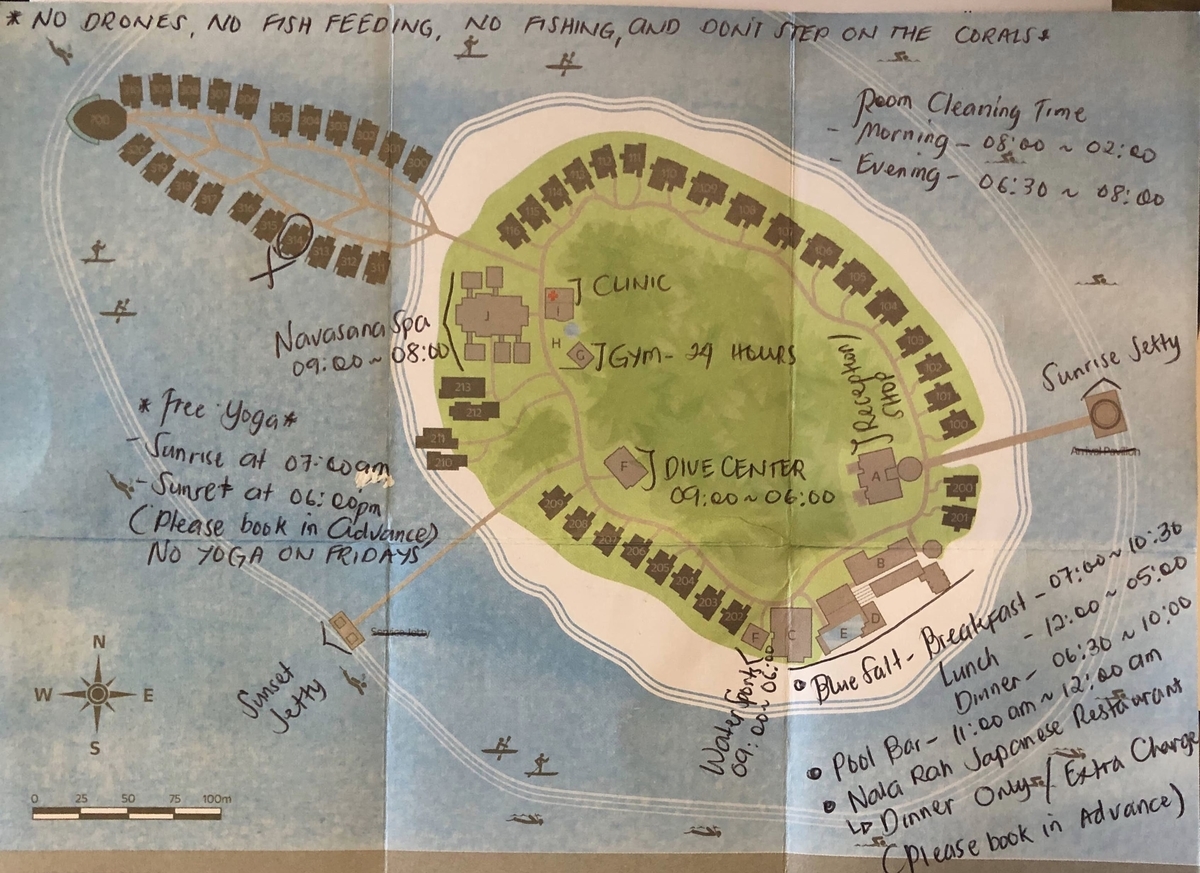 * NO DRONES, NO FISH FEEDING, NO FISHING, AND DON'T STEP ON THE CORALS *
Room Cleaning Time
- Morning - 08:00 ~ 02:00
- Evening - 06:30 ~ 08:00
700
310 309 308 307 306 305 304 303 302 301 300
320 319 318 317 316 315 314 313 312 311
116 115 114 113 112 111 110 109 108 107 106 105 104 103 102 101 100
J CLINIC
I
J
H
G
Navasana Spa
09:00 ~ 08:00
GYM - 24 HOURS
Reception/
Shop
Sunrise Jetty
Arrival Pavilion
213
212
211
210
* Free Yoga *
- Sunrise at 07:00am
- Sunset at 06:00pm
(Please book in Advance)
NO YOGA ON FRIDAYS
F
DIVE CENTER
09:00 ~ 06:00
A
200
201
209 208 207 206 205 204 203 202
B
C
D
E
F
Service Jetty
Sunset
Jetty
Water Sports
09:00 ~ 06:00
• Blue Salt - Breakfast - 07:00 ~ 10:30
Lunch - 12:00 ~ 05:00
Dinner - 06:30 ~ 10:00
• Pool Bar - 11:00 am ~ 12:00 am
• Nala Rah Japanese Restaurant
↳ Dinner Only / Extra Charge
(Please book in Advance)
N
W E
S
0 25 50 75 100m